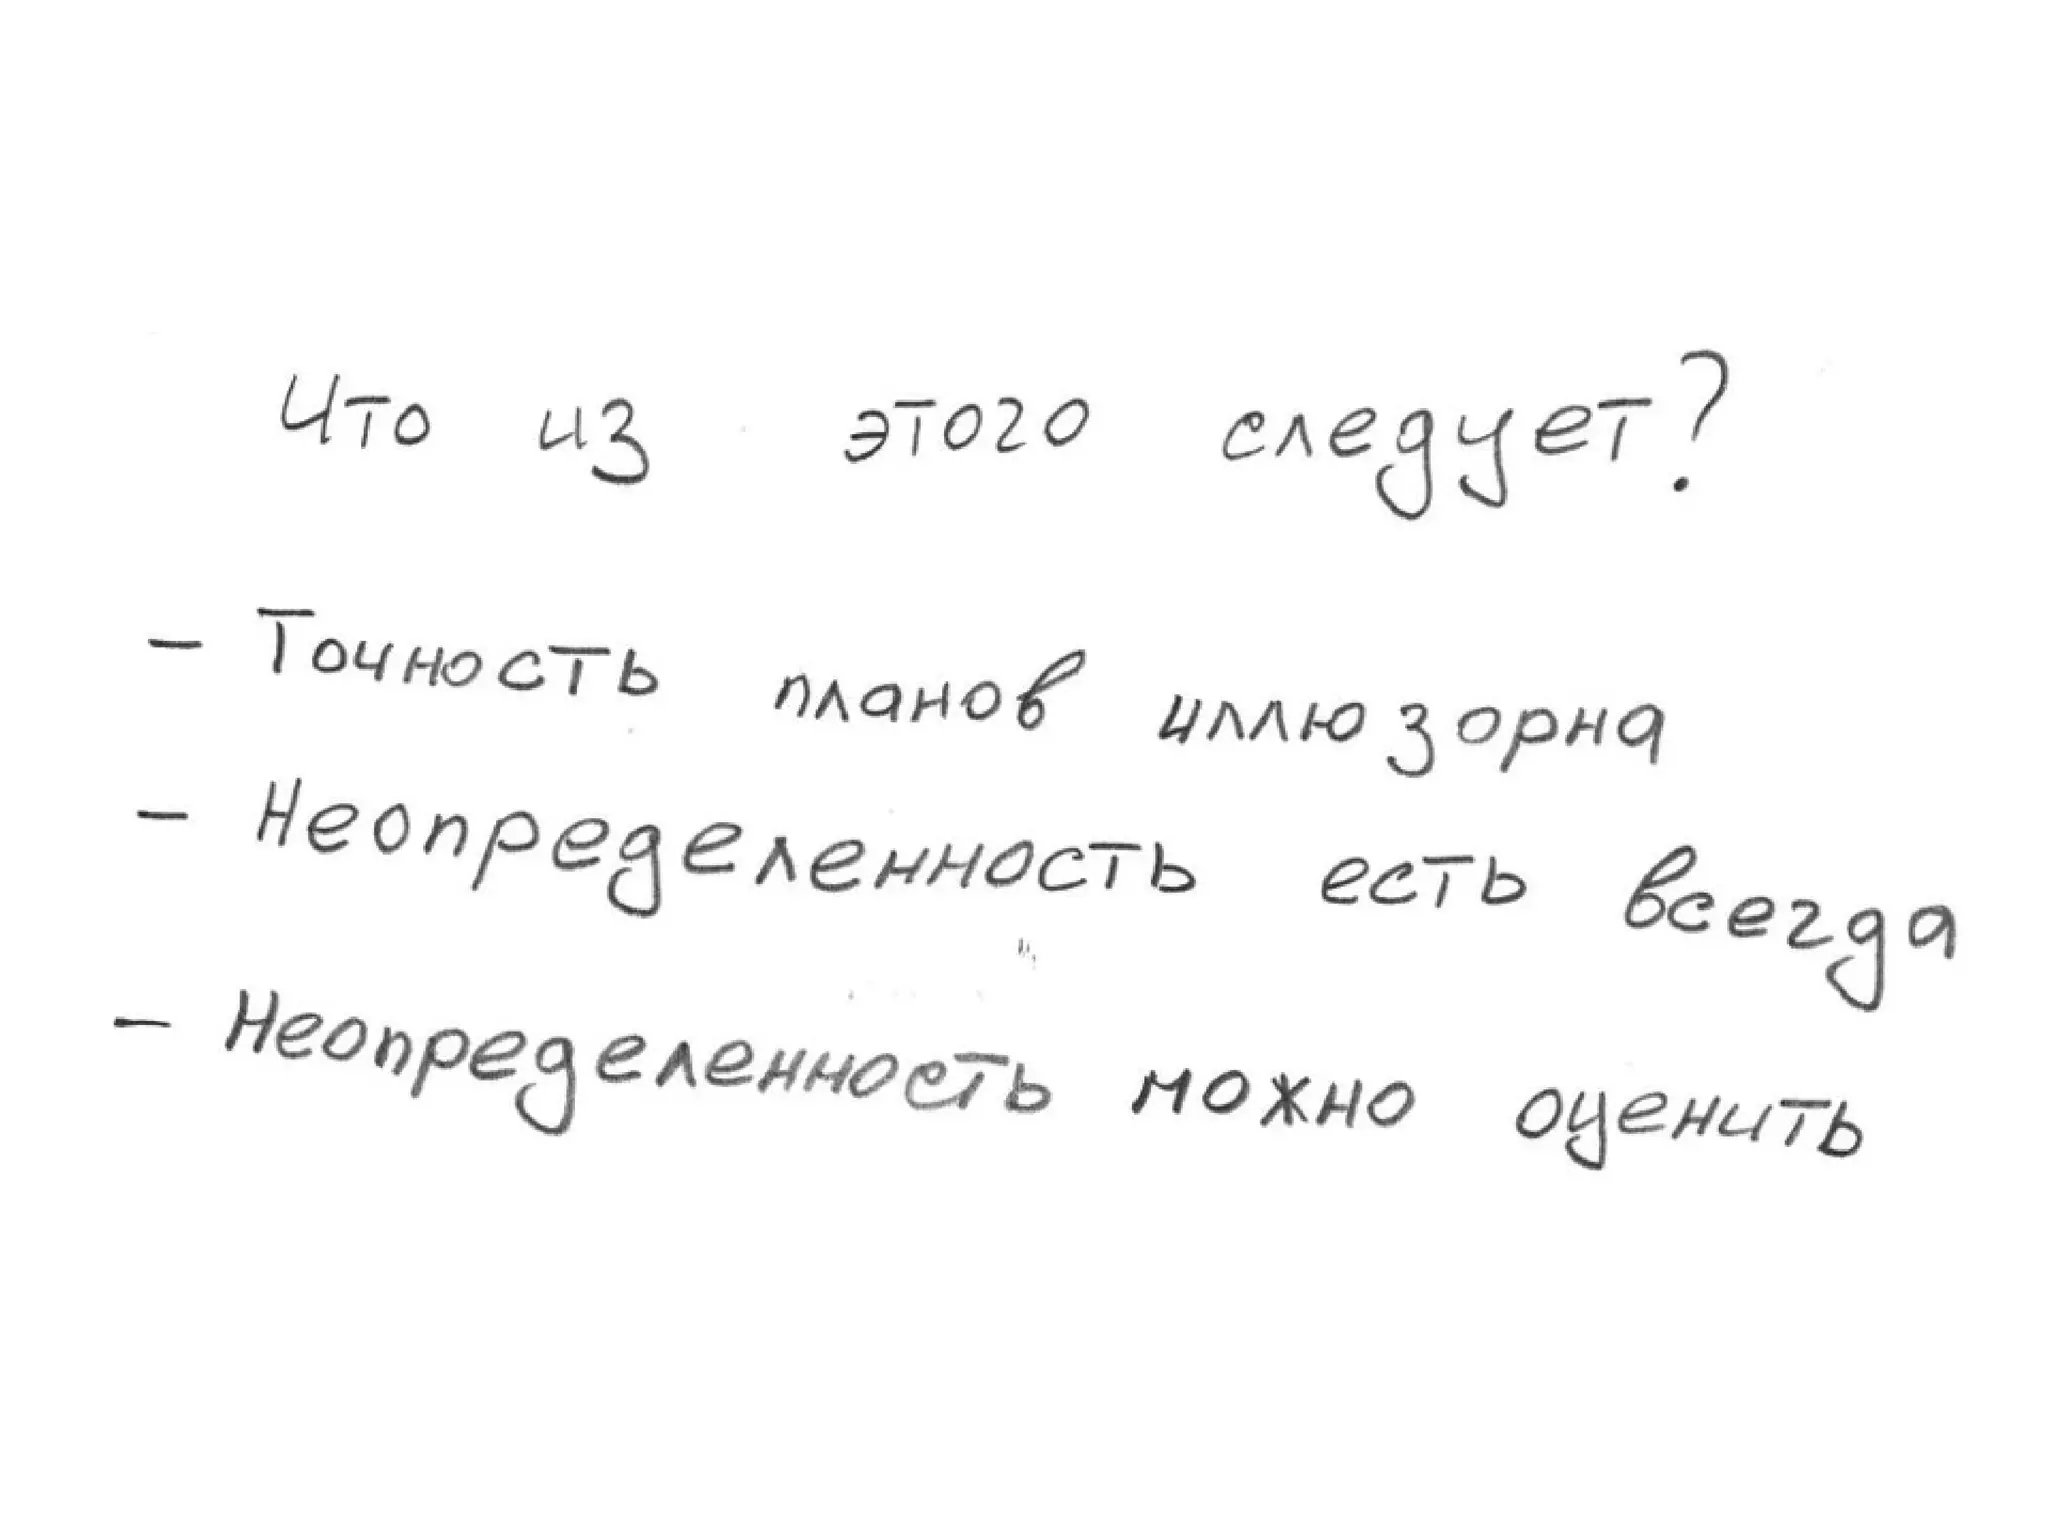 Что из этого следует?
- Точность планов иллюзорна
- Неопределенность есть всегда
- Неопределенность можно оценить